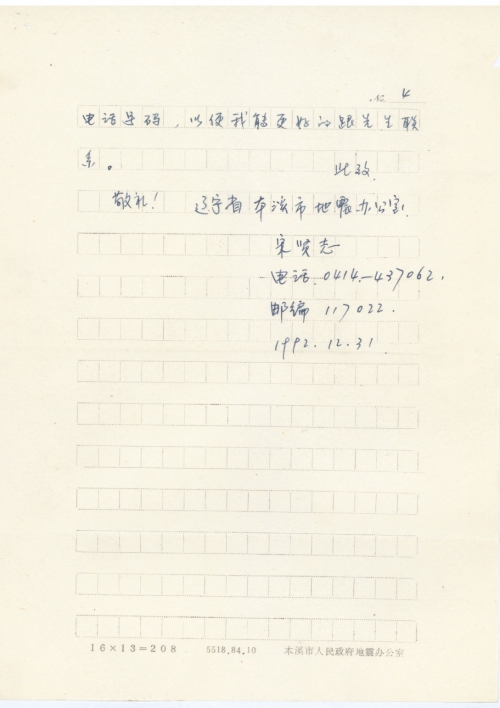 4
电话号码，以便我能更好的跟先生联
系。 此致
敬礼！ 辽宁省本溪市地震办公室
宋贤志
电话.0414-437062.
邮编 117022.
1992.12.31
16×13=208 5518.84.10 本溪市人民政府地震办公室